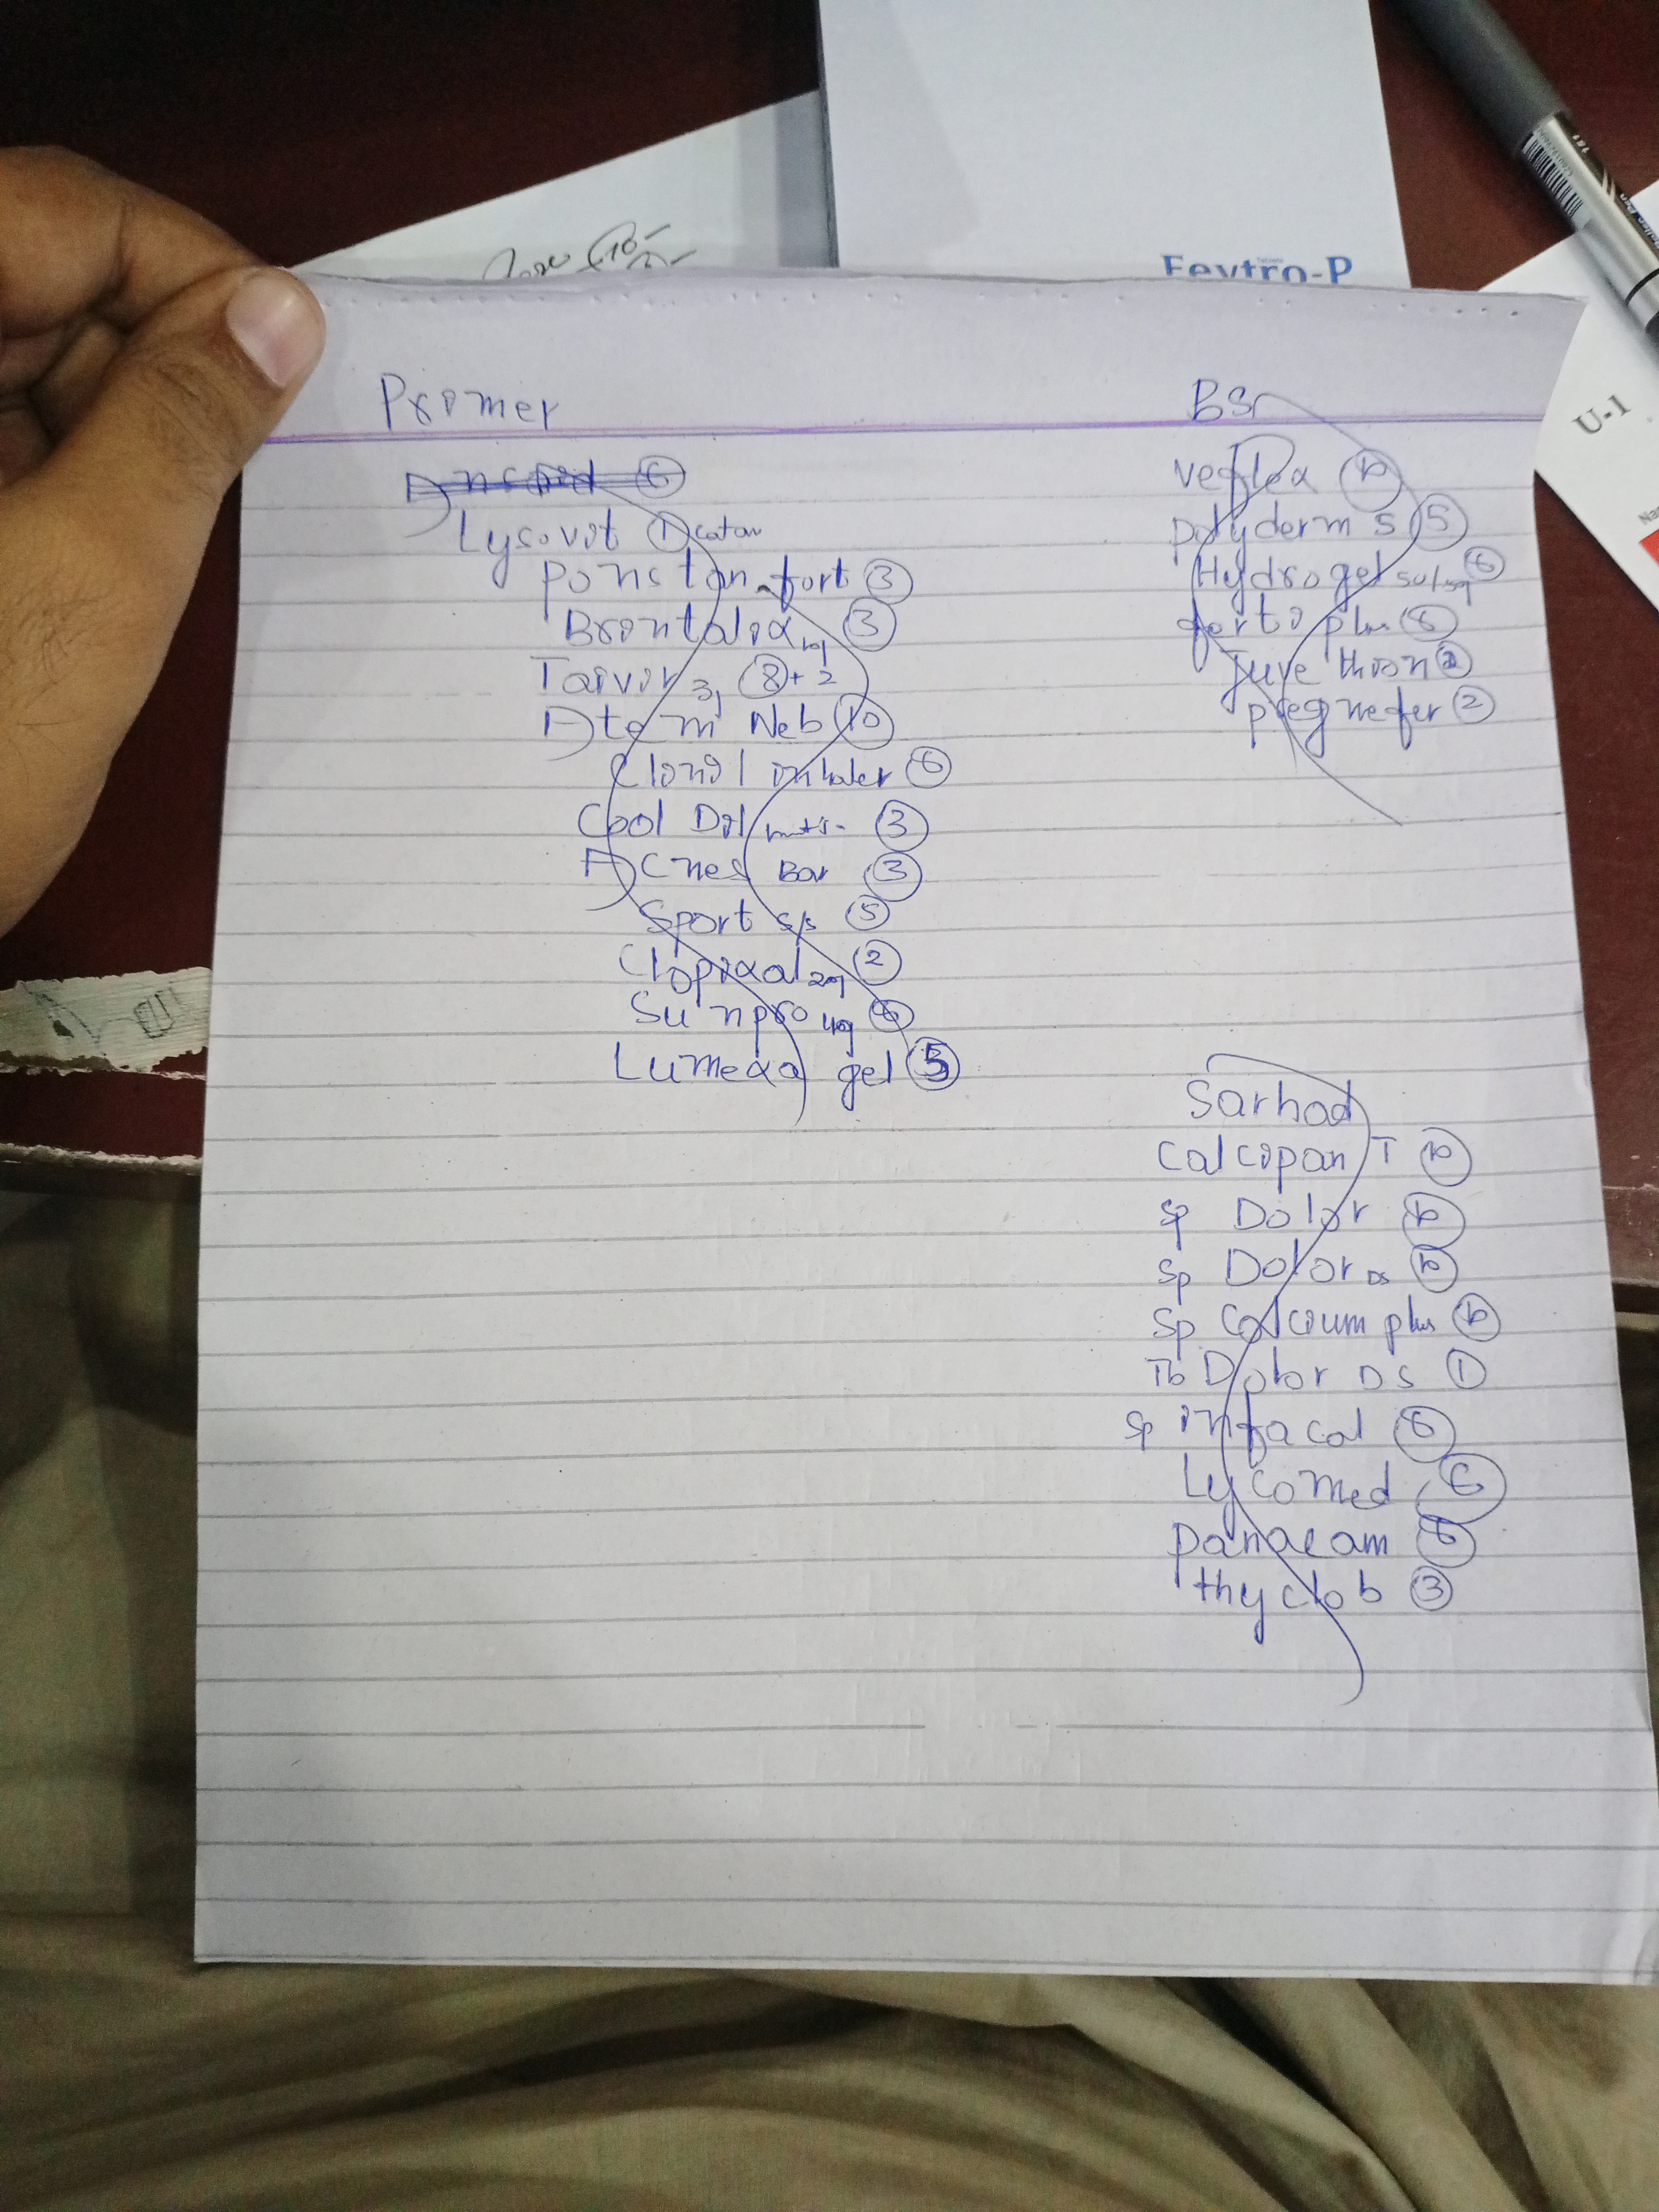 Feytro-P
U-1
Promer
Lysovit 1 catan
Ponstan fort 3
Brontalix 3
Tarvir 8+2
Atem Neb 10
Clonil inhaler 6
Cool Dil 3
Acnes Bar 3
Sport s/s 5
Clopixal 2
Sunpro
Lumexa gel 5
BS
veflox 10
polyderm S 5
Hydrogel 6
forti plus 6
Juve thron
pregnefer 2
Sarhad
Calcipan T 10
Sp Dolor 10
Sp Dolor DS 10
Sp Calcium plus 10
Tb Dolor DS 1
Sp infacal 6
Lycomed 6
panacam 6
thyclob 3